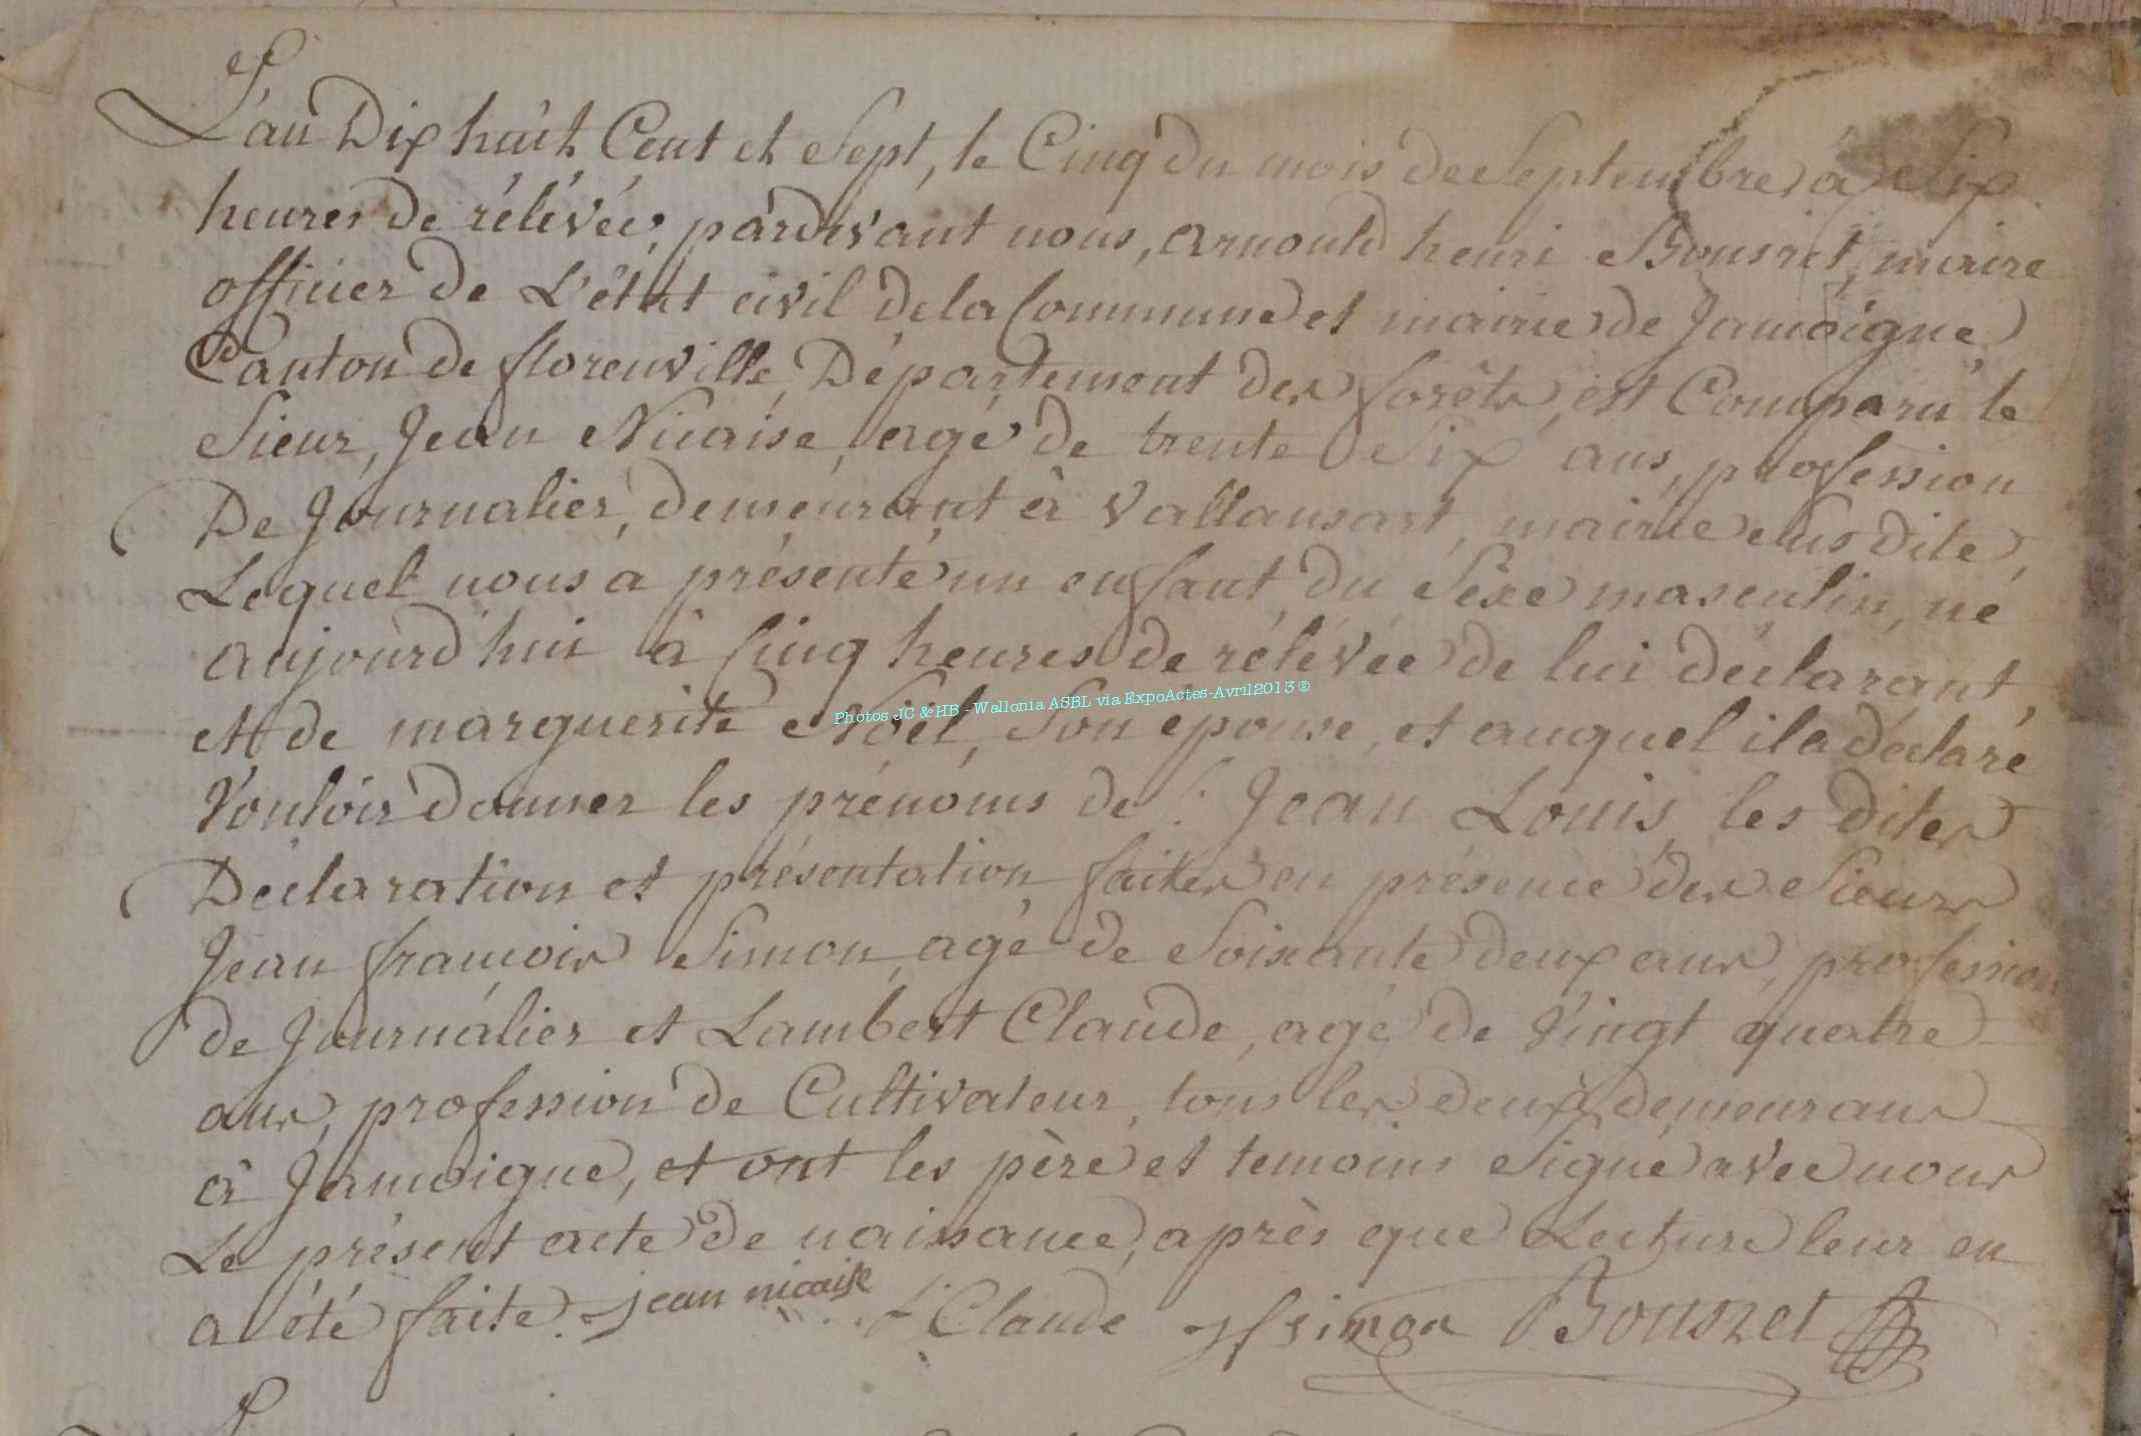 L'an Dix huit Cent et Sept, le Cinq du mois de Septembre à Six
heures de rélévée, pardevant nous, arnould henri Bousret, maire
officier de L'état civil de la Commune et mairie de Jamoigne
Canton de florenville, Département des forêts, est Comparu le
Sieur, Jean Nicaise, agé de trente Six ans, profession
De Journalier, demeurant à Vallansart, mairie susdite,
Lequel nous a présenté un enfant du Sexe masculin, né
aujourd'hui à Cinq heures de rélévée de lui déclarant,
et de marguerite Noël, Son épouse, et auquel il a déclaré
Vouloir donner les prénoms de : Jean Louis, les dites
Déclaration et présentation faites en présence des Sieurs
Jean françois Simon, agé de Soixante deux ans, profession
de Journalier et Lambert Claude, agé de Vingt quatre
ans, profession de Cultivateur, tous les deux demeurans
à Jamoigne, et ont les père et temoins Signé avec nous
Le présent acte de naissance, après que Lecture leur en
a été faite. jean nicaise L Claude Jf simon Bousret
Photos JC & HB - Wallonia ASBL via ExpoActes-Avril2013 ©